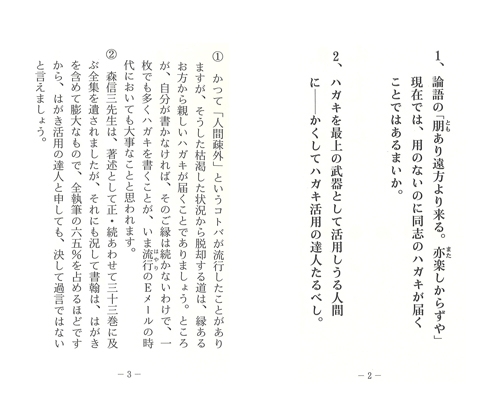 1、論語の「朋あり遠方より来る。亦楽しからずや」
とも
また
現在では、用のないのに同志のハガキが届く
ことではあるまいか。
2、ハガキを最上の武器として活用しうる人間
に——かくしてハガキ活用の達人たるべし。
― 2 ―
① かつて「人間疎外」というコトバが流行したことがあり
ますが、そうした枯渇した状況から脱却する道は、縁ある
お方から親しいハガキが届くことでありましょう。ところ
が、自分が書かなければ、そのご縁は続かないわけで、一
枚でも多くハガキを書くことが、いま流行のEメールの時
はやり
代においても大事なことと思われます。
② 森信三先生は、著述として正・続あわせて三十三巻に及
ぶ全集を遺されましたが、それにも況して書翰は、はがき
を含めて膨大なもので、全執筆の六五％を占めるほどです
から、はがき活用の達人と申しても、決して過言ではない
と言えましょう。
― 3 ―